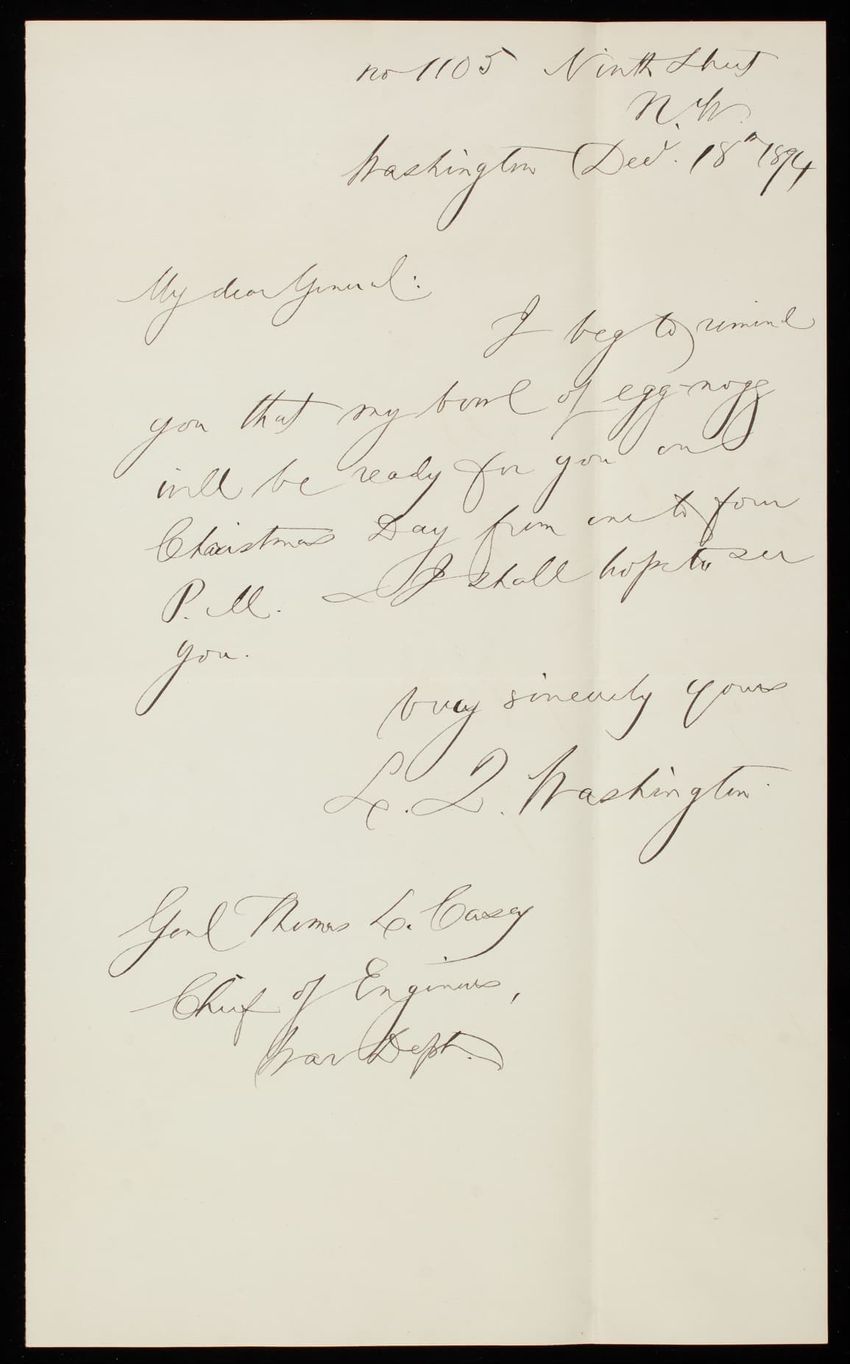 no 1105 Ninth Street
N.W.
Washington Decr. 18th 1894
My dear General:
I beg to remind
you that my bowl of egg-nogg
will be ready for you on
Christmas Day from one to four
P.M. & I shall hope to see
you.
Very sincerely yours
L. Q. Washington
Genl Thomas L. Casey
Chief of Engineers,
War Dept.